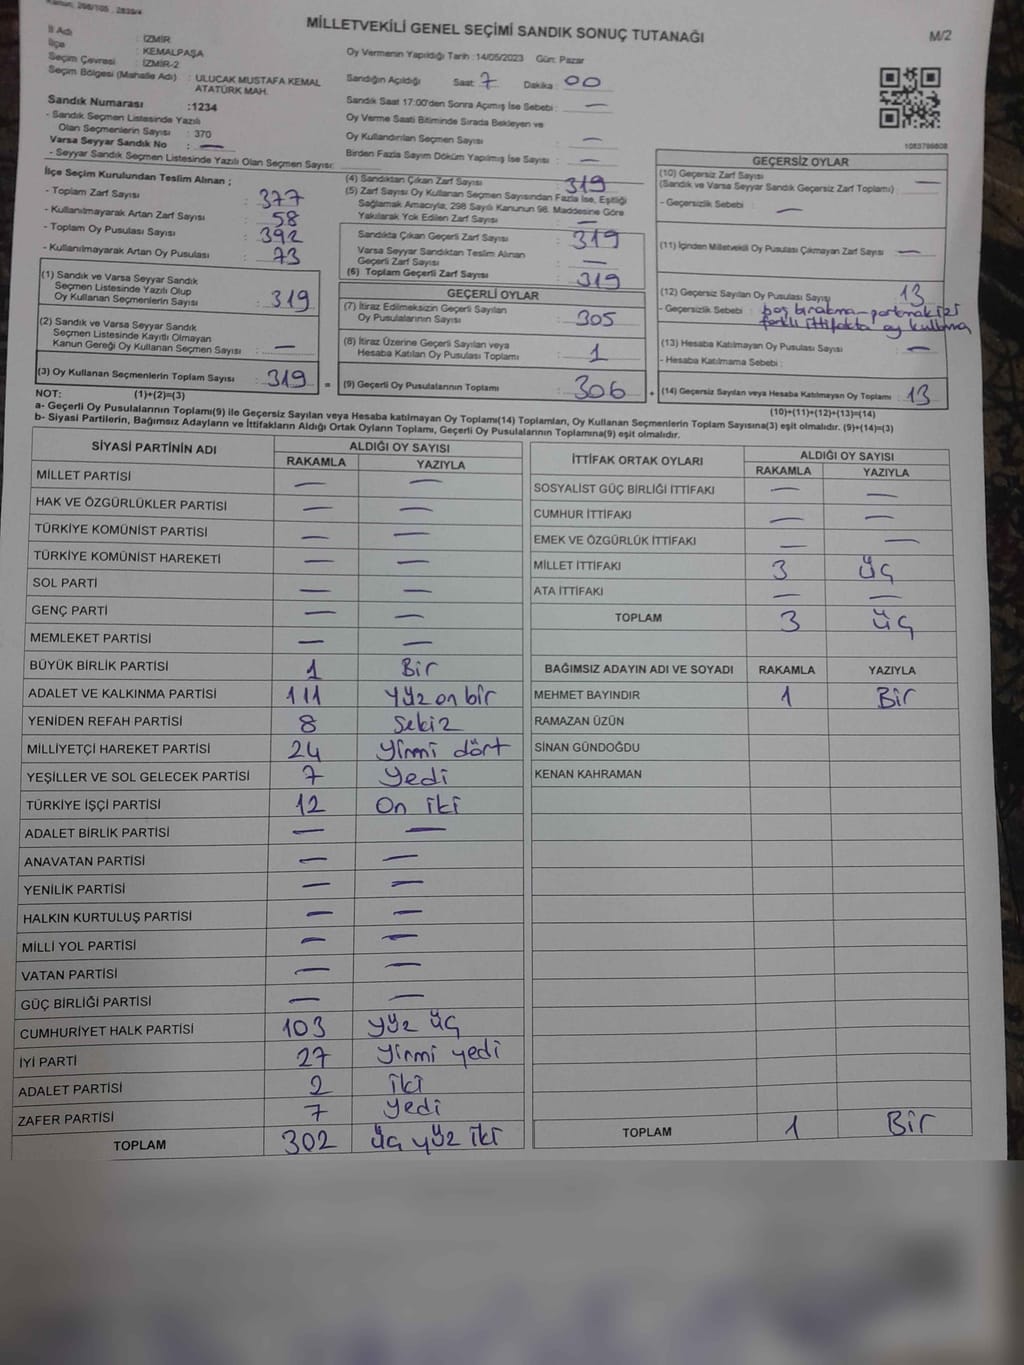 MİLLETVEKİLİ GENEL SEÇİMİ SANDIK SONUÇ TUTANAĞI
M/2
İl Adı : İZMİR
İlçe : KEMALPAŞA
Seçim Çevresi : İZMİR-2
Seçim Bölgesi (Mahalle Adı) : ULUCAK MUSTAFA KEMAL
ATATÜRK MAH.
Sandık Numarası :1234
- Sandık Seçmen Listesinde Yazılı
Olan Seçmenlerin Sayısı : 370
Varsa Seyyar Sandık No : —
- Seyyar Sandık Seçmen Listesinde Yazılı Olan Seçmen Sayısı:
Oy Vermenin Yapıldığı Tarih :14/05/2023 Gün: Pazar
Sandığın Açıldığı Saat: 7 Dakika : 00
Sandık Saat 17:00'den Sonra Açımış İse Sebebi : —
Oy Verme Saati Bitiminde Sırada Bekleyen ve
Oy Kullandırılan Seçmen Sayısı : —
Birden Fazla Sayım Döküm Yapılmış İse Sayısı : —
İlçe Seçim Kurulundan Teslim Alınan ;
- Toplam Zarf Sayısı : 377
- Kullanılmayarak Artan Zarf Sayısı : 58
- Toplam Oy Pusulası Sayısı : 392
- Kullanılmayarak Artan Oy Pusulası : 73
(1) Sandık ve Varsa Seyyar Sandık
Seçmen Listesinde Yazılı Olup
Oy Kullanan Seçmenlerin Sayısı : 319
(2) Sandık ve Varsa Seyyar Sandık
Seçmen Listesinde Kayıtlı Olmayan
Kanun Gereği Oy Kullanan Seçmen Sayısı : —
(3) Oy Kullanan Seçmenlerin Toplam Sayısı : 319 =
(4) Sandıktan Çıkan Zarf Sayısı : 319
(5) Zarf Sayısı Oy Kullanan Seçmen Sayısından Fazla İse, Eşitliği
Sağlamak Amacıyla; 298 Sayılı Kanunun 98. Maddesine Göre
Yakılarak Yok Edilen Zarf Sayısı : —
Sandıkta Çıkan Geçerli Zarf Sayısı : 319
Varsa Seyyar Sandıktan Teslim Alınan
Geçerli Zarf Sayısı : —
(6) Toplam Geçerli Zarf Sayısı : 319
GEÇERLİ OYLAR
(7) İtiraz Edilmeksizin Geçerli Sayılan
Oy Pusulalarının Sayısı : 305
(8) İtiraz Üzerine Geçerli Sayılan veya
Hesaba Katılan Oy Pusulası Toplamı : 1
(9) Geçerli Oy Pusulalarının Toplamı : 306 +
1083798808
GEÇERSİZ OYLAR
(10) Geçersiz Zarf Sayısı : —
(Sandık ve Varsa Seyyar Sandık Geçersiz Zarf Toplamı)
- Geçersizlik Sebebi : —
(11) İçinden Milletvekili Oy Pusulası Çıkmayan Zarf Sayısı : —
(12) Geçersiz Sayılan Oy Pusulası Sayısı : 13
- Geçersizlik Sebebi : boş bırakma-parmak izi
farklı ittifakta oy kullanma
(13) Hesaba Katılmayan Oy Pusulası Sayısı : —
- Hesaba Katılmama Sebebi :
(14) Geçersiz Sayılan veya Hesaba Katılmayan Oy Toplamı : 13
NOT: (1)+(2)=(3)
(10)+(11)+(12)+(13)=(14)
a- Geçerli Oy Pusulalarının Toplamı(9) ile Geçersiz Sayılan veya Hesaba katılmayan Oy Toplamı(14) Toplamları, Oy Kullanan Seçmenlerin Toplam Sayısına(3) eşit olmalıdır. (9)+(14)=(3)
b- Siyasi Partilerin, Bağımsız Adayların ve İttifakların Aldığı Ortak Oyların Toplamı, Geçerli Oy Pusulalarının Toplamına(9) eşit olmalıdır.
SİYASİ PARTİNİN ADI ALDIĞI OY SAYISI
RAKAMLA YAZIYLA
MİLLET PARTİSİ — —
HAK VE ÖZGÜRLÜKLER PARTİSİ — —
TÜRKİYE KOMÜNİST PARTİSİ — —
TÜRKİYE KOMÜNİST HAREKETİ — —
SOL PARTİ — —
GENÇ PARTİ — —
MEMLEKET PARTİSİ — —
BÜYÜK BİRLİK PARTİSİ 1 Bir
ADALET VE KALKINMA PARTİSİ 111 yüz on bir
YENİDEN REFAH PARTİSİ 8 Sekiz
MİLLİYETÇİ HAREKET PARTİSİ 24 yirmi dört
YEŞİLLER VE SOL GELECEK PARTİSİ 7 yedi
TÜRKİYE İŞÇİ PARTİSİ 12 On iki
ADALET BİRLİK PARTİSİ — —
ANAVATAN PARTİSİ — —
YENİLİK PARTİSİ — —
HALKIN KURTULUŞ PARTİSİ — —
MİLLİ YOL PARTİSİ — —
VATAN PARTİSİ — —
GÜÇ BİRLİĞİ PARTİSİ — —
CUMHURİYET HALK PARTİSİ 103 yüz üç
İYİ PARTİ 27 yirmi yedi
ADALET PARTİSİ 2 iki
ZAFER PARTİSİ 7 yedi
TOPLAM 302 üç yüz iki
İTTİFAK ORTAK OYLARI ALDIĞI OY SAYISI
RAKAMLA YAZIYLA
SOSYALİST GÜÇ BİRLİĞİ İTTİFAKI — —
CUMHUR İTTİFAKI — —
EMEK VE ÖZGÜRLÜK İTTİFAKI — —
MİLLET İTTİFAKI 3 üç
ATA İTTİFAKI — —
TOPLAM 3 üç
BAĞIMSIZ ADAYIN ADI VE SOYADI RAKAMLA YAZIYLA
MEHMET BAYINDIR 1 Bir
RAMAZAN ÜZÜN
SİNAN GÜNDOĞDU
KENAN KAHRAMAN
TOPLAM 1 Bir